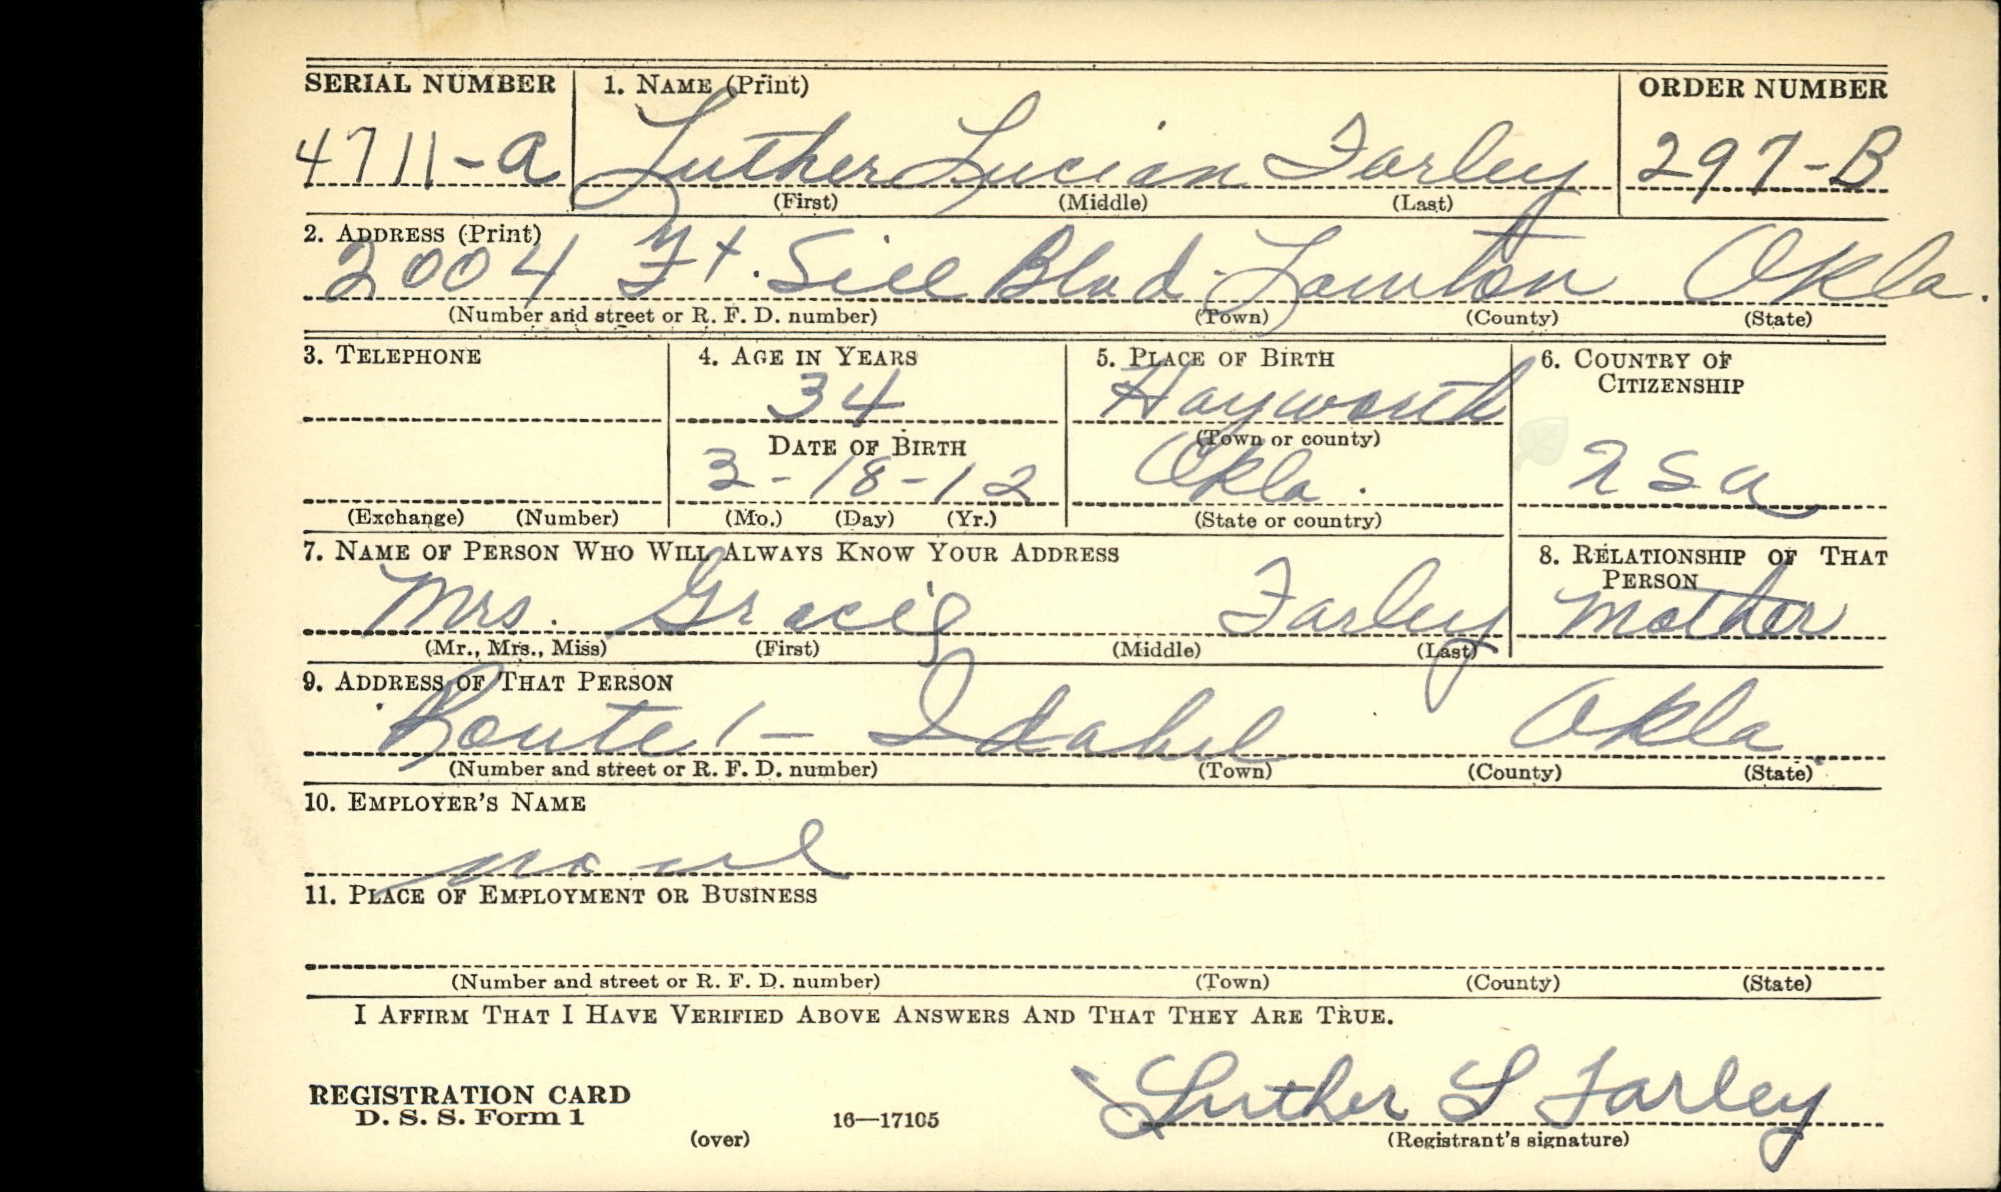 SERIAL NUMBER 1. NAME (Print) ORDER NUMBER
4711-a Luther Lucian Farley 297-B
(First) (Middle) (Last)
2. ADDRESS (Print)
2004 Ft. Sill Blvd. Lawton Okla.
(Number and street or R. F. D. number) (Town) (County) (State)
3. TELEPHONE 4. AGE IN YEARS 5. PLACE OF BIRTH 6. COUNTRY OF
CITIZENSHIP
34 Hayworth
DATE OF BIRTH (Town or county)
3-18-12 Okla. USA
(Exchange) (Number) (Mo.) (Day) (Yr.) (State or country)
7. NAME OF PERSON WHO WILL ALWAYS KNOW YOUR ADDRESS 8. RELATIONSHIP OF THAT
PERSON
Mrs. Gracie Farley Mother
(Mr., Mrs., Miss) (First) (Middle) (Last)
9. ADDRESS OF THAT PERSON
Route 1 - Idabel Okla.
(Number and street or R. F. D. number) (Town) (County) (State)
10. EMPLOYER'S NAME
none
11. PLACE OF EMPLOYMENT OR BUSINESS
(Number and street or R. F. D. number) (Town) (County) (State)
I AFFIRM THAT I HAVE VERIFIED ABOVE ANSWERS AND THAT THEY ARE TRUE.
Luther L Farley
REGISTRATION CARD
D. S. S. Form 1 16—17105
(over) (Registrant's signature)